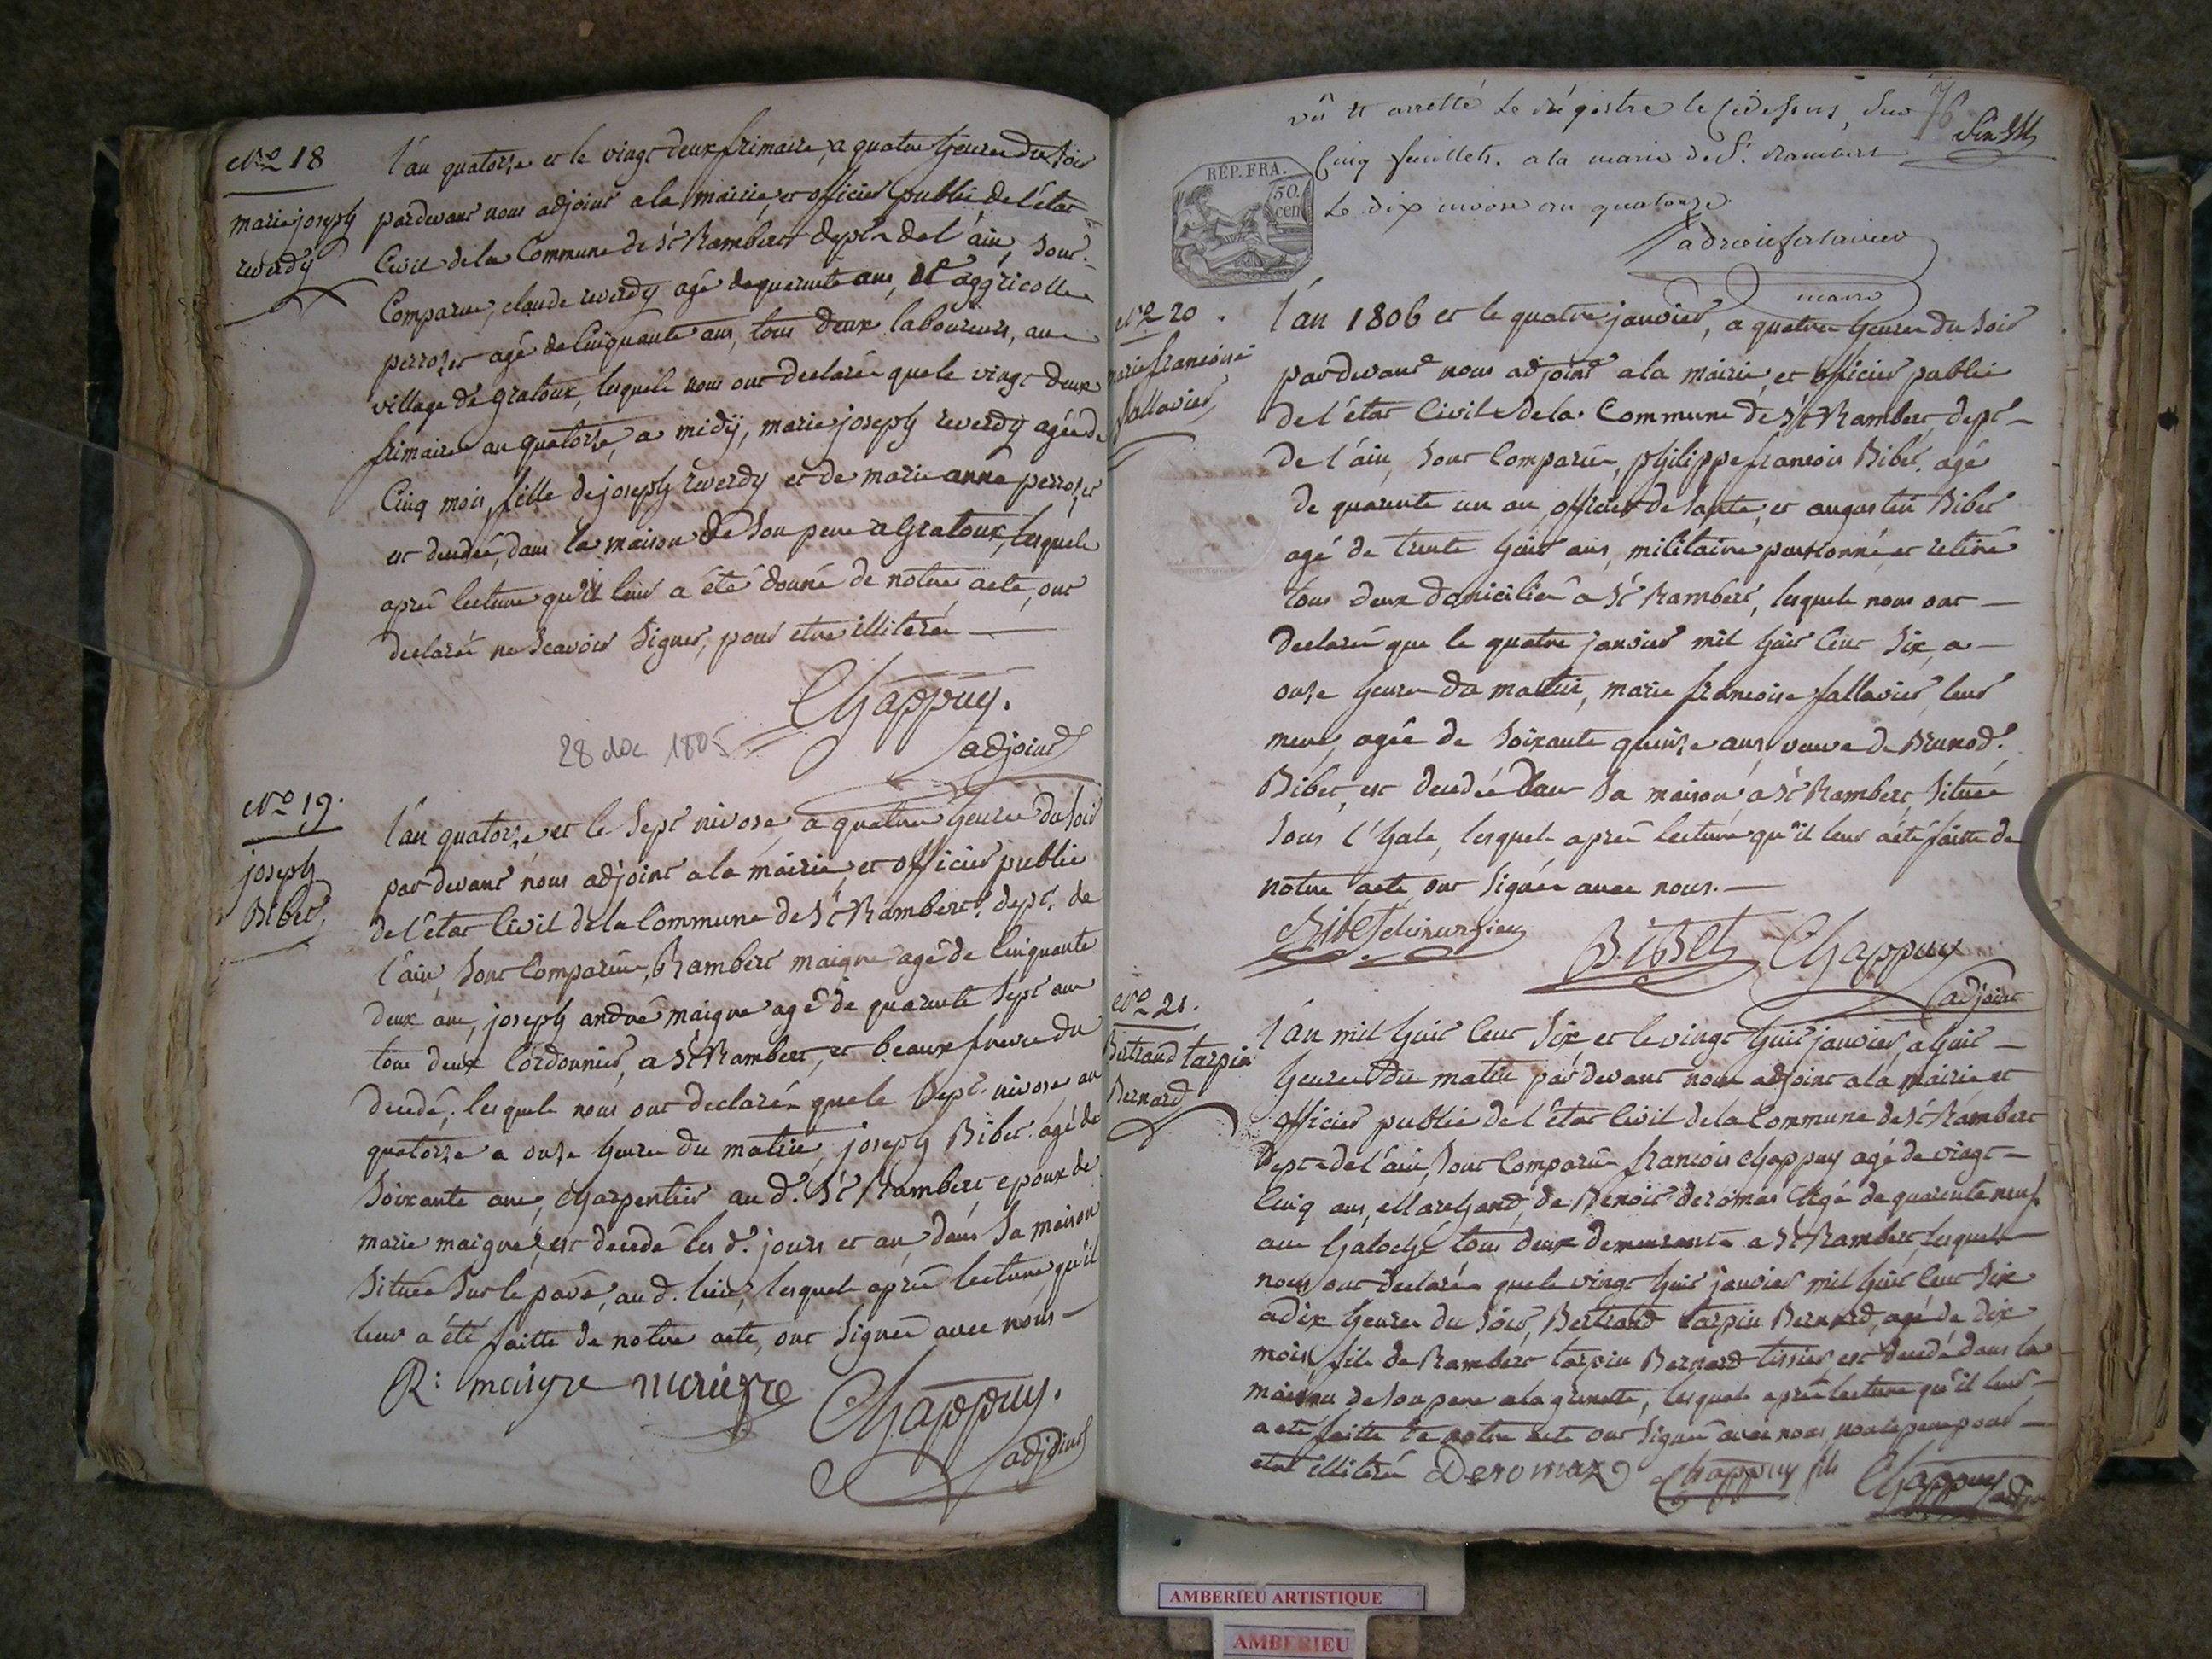 Nro 18
marie joseph
reverdy
l'an quatorze et le vingt deux frimaire, a quatre heures du soir
pardevant nous adjoint a la mairie, et officier public de l'état
Civil de la Commune de St Rambert dept de l'ain, sont
Comparus, claude reverdy agé de quarante ans, et
perrozet agé de Cinquante ans, tous deux laboureurs, au
village de gratoux, lesquels nous ont declarés que le vingt deux
frimaire an quatorze, a midÿ, marie joseph reverdy agée de
Cinq mois, fille de joseph reverdy et de marie anne perrozet
est decedée, dans la maison de son pere a Gratoux, lesquels
aprés lecture qu'il leur a été donné de notre acte, ont
declarés ne Scavoir Signer, pour etre illiterés
Chappuy.
adjoint
28 dec 1805
No 19.
joseph
Bibet
l'an quatorze et le Sept nivose, a quatre heures du soir
par devant nous adjoint a la mairie, et officier public
de l'état Civil de la Commune de St Rambert, dept. de
l'ain, sont Comparus, Rambert maigre agé de Cinquante
deux ans, joseph andré maigre agé de quarante Sept ans
tous deux Cordonniers, a St Rambert, et beaux freres du
decedé, lesquels nous ont declarés que le Sept nivose an
quatorze a onze heures du matin, joseph Bibet agé de
Soixante ans, Charpentier au d. St Rambert, epoux de
marie maigre, est decedé les d. jours et an, dans Sa maison
Située Sur le pavé, au d. lieu, lesquels aprés lecture, qu'il
leur a été faitte de notre acte, ont Signés avec nous
R: maigre maigre Chappuy.
adjoint
vû et arretté le régistre le Cidessus, sur
76
Cinq feuillets. a la mairie de St. Rambert
Le dix nivose an quatorze.
maire
RÉP. FRA.
50.
cen
No 20.
marie francoise
fallavier
l'an 1806 et le quatre janvier, a quatre heures du soir
pardevant nous adjoint a la mairie, et officier public
de l'état Civil de la Commune de St Rambert, dept
de l'ain, Sont Comparus, philippe francois Bibet, agé
de quarante un an, officier de Santé, et augustin Bibet
agé de trente huit ans, militaire pensionné, et retiré
tous deux domiciliés a St Rambert, lesquels nous ont
declarés que le quatre janvier mil huit Cent Six, a
onze heures du matin, marie francoise fallavier, leur
mere, agée de Soixante quinze ans, veuve de Brunod
Bibet, est decedée dans Sa maison, a St Rambert, Située
Sous l'hale, lesquels aprés lecture qu'il leur a été faitte de
notre acte ont Signés avec nous.
Bibet chirurgien Bibet Chappuy
adjoint
No 21.
Bertrand tarpin
Bernard
l'an mil huit Cent Six, et le vingt huit janvier, a huit
heures du matin, par devant nous adjoint a la mairie et
officier public de l'état Civil de la Commune de St Rambert
dept de l'ain, Sont Comparus francois chappuy agé de vingt
Cinq ans, Marchand, de Benoit deromas agé de quarente neuf
ans Galoché tous deux demeurants a St Rambert, lesquels
nous ont declarés que le vingt huit janvier mil huit Cent Six
a dix heures du Soir, Bertrand tarpin Bernard, agé de dix
mois, fils de Rambert tarpin Bernard tissier, est decedé dans la
maison de son pere a la grenette, lesquels aprés lecture qu'il leur
a été faitte de notre acte ont Signés avec nous, non le pere pour
etre illiteré Deromaz Chappuy fils Chappuy adjoint
AMBERIEU ARTISTIQUE
AMBERIEU